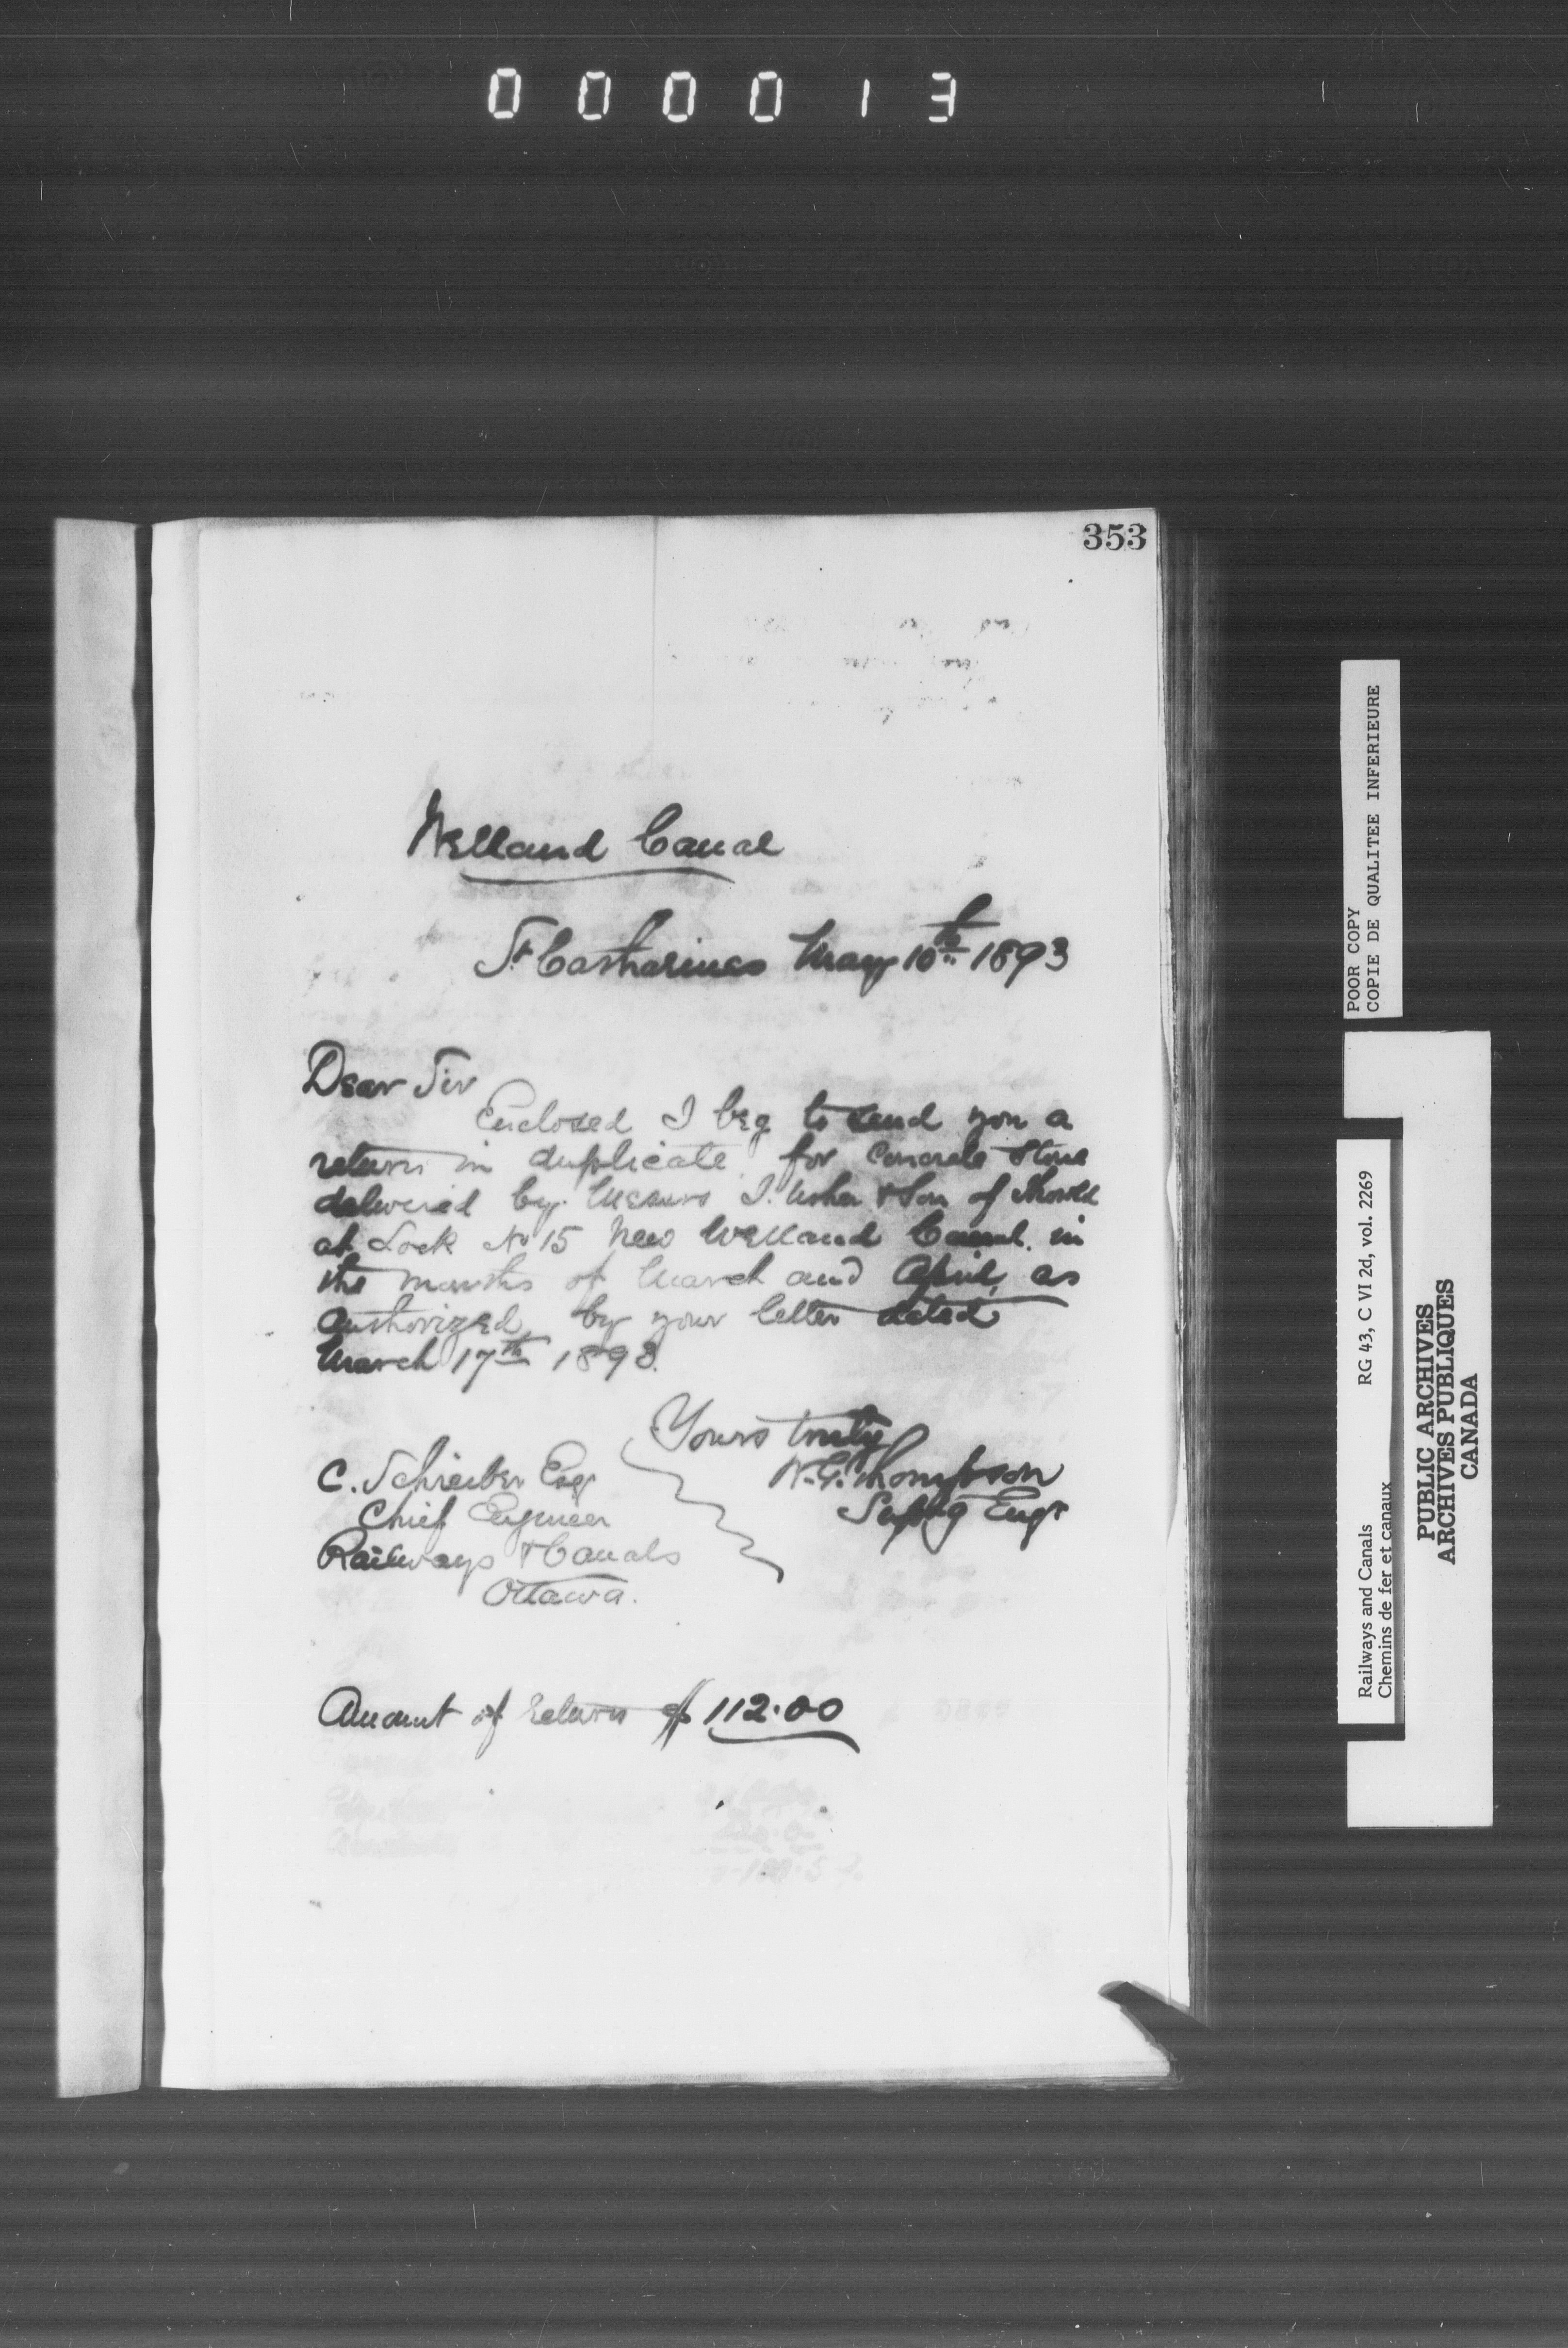 000013
353
Welland Canal
St Catharines May 10th 1893
Dear Sir
Enclosed I beg to send you a
return in duplicate for Concrete Stone
delivered by Messrs I. Usher & Son of Thorold
at Lock No 15 New Welland Canal in
the months of March and April, as
authorized by your letter dated
March 17th 1893.
Yours truly
W.G. Thompson
Suptg Engr
C. Schreiber Esq
Chief Engineer
Railways & Canals
Ottawa.
Amount of return $112.00
POOR COPY
COPIE DE QUALITEE INFERIEURE
RG 43, C VI 2d, vol. 2269
Railways and Canals
Chemins de fer et canaux
PUBLIC ARCHIVES
ARCHIVES PUBLIQUES
CANADA